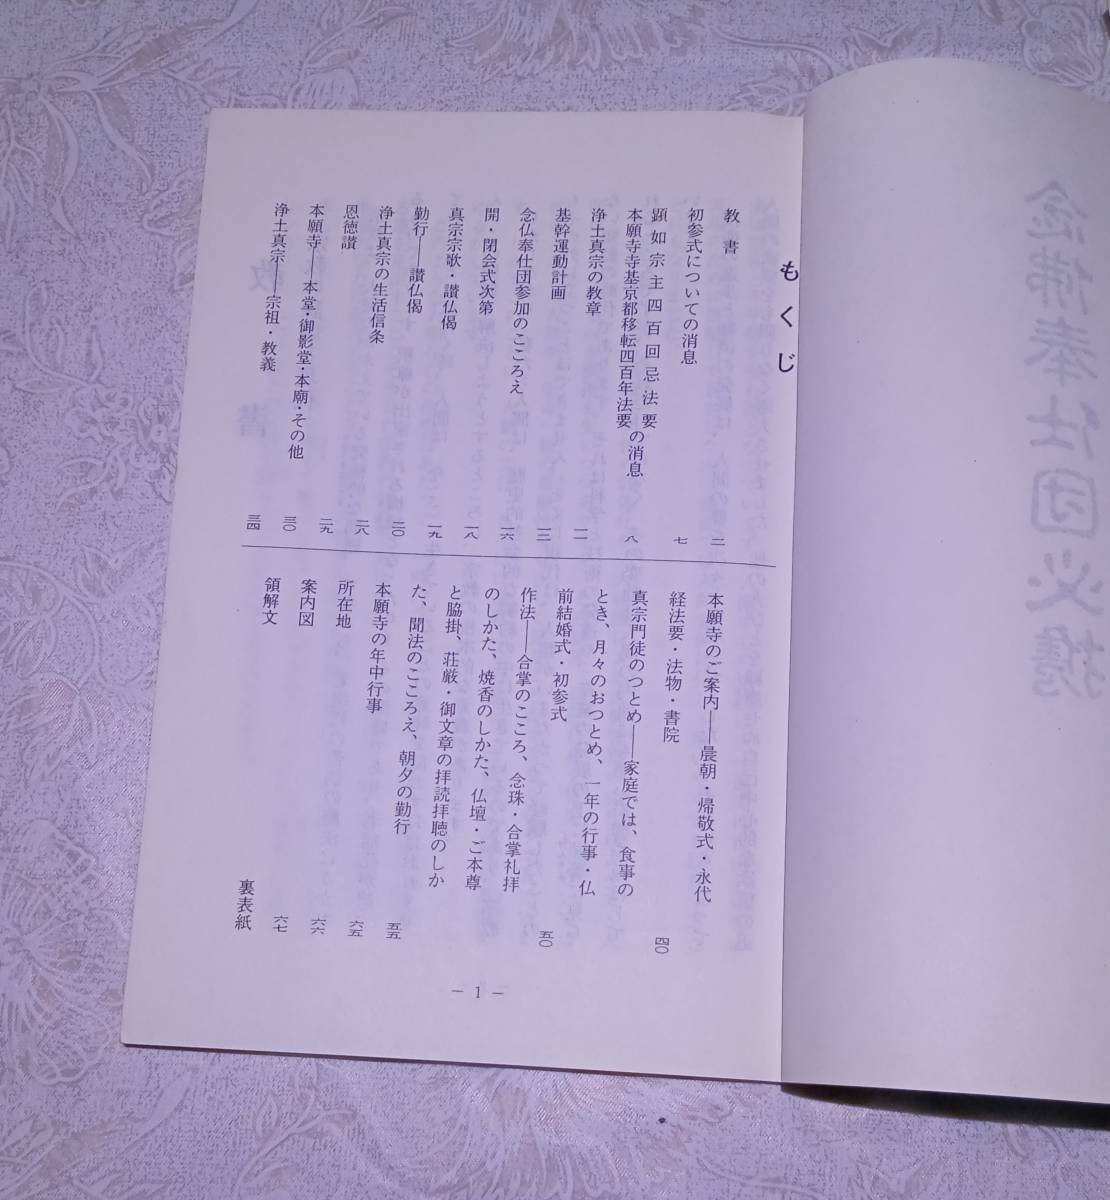 念佛奉仕団必携
もくじ
教書 二
初参式についての消息 七
顕如宗主四百回忌法要
本願寺寺基京都移転四百年法要
の消息 八
浄土真宗の教章 一一
基幹運動計画 一二
念仏奉仕団参加のこころえ 一六
開・閉会式次第 一八
真宗宗歌・讃仏偈 一九
勤行――讃仏偈 二〇
浄土真宗の生活信条 二八
恩徳讃 二九
本願寺――本堂・御影堂・本廟・その他 三〇
浄土真宗――宗祖・教義 三四
本願寺のご案内――晨朝・帰敬式・永代
経法要・法物・書院 四〇
真宗門徒のつとめ――家庭では、食事の
とき、月々のおつとめ、一年の行事・仏
前結婚式・初参式 五〇
作法――合掌のこころ、念珠・合掌礼拝
のしかた、焼香のしかた、仏壇・ご本尊
と脇掛、荘厳・御文章の拝読拝聴のしか
た、聞法のこころえ、朝夕の勤行 五五
本願寺の年中行事 六五
所在地 六六
案内図 六七
領解文 裏表紙
－ 1 －